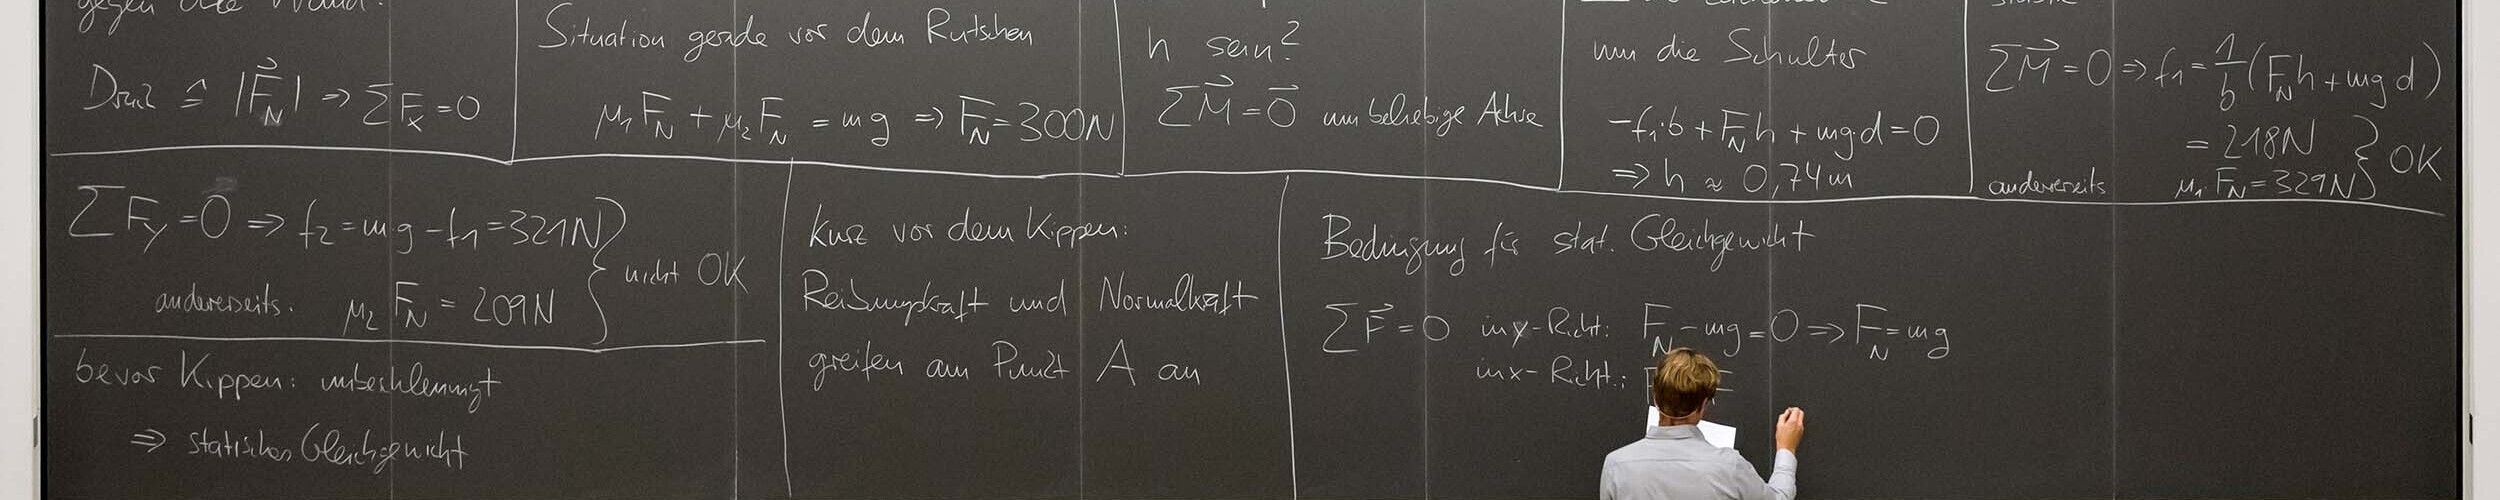 gegen die Wand.
Druck ≙ |F⃗_N| ⇒ ΣF_x = 0
Situation gerade vor dem Rutschen
μ₁F_N + μ₂F_N = mg ⇒ F_N = 300N
h sein?
ΣM⃗ = 0⃗ um beliebige Achse
um die Schulter
-f₁·b + F_N h + mg·d = 0
⇒ h ≈ 0,74m
ΣM⃗ = 0 ⇒ f₁ = 1/b (F_N h + mg d)
= 218N } OK
andererseits μ₁ F_N = 329N
ΣF_y = 0⃗ ⇒ f₂ = mg - f₁ = 321N } nicht OK
andererseits. μ₂ F_N = 209N
bevor Kippen: unbeschleunigt
⇒ statisches Gleichgewicht
kurz vor dem Kippen:
Reibungskraft und Normalkraft
greifen am Punkt A an
Bedingung für stat. Gleichgewicht
ΣF⃗ = 0 in y-Richt: F_N - mg = 0 ⇒ F_N = mg
in x-Richt.: